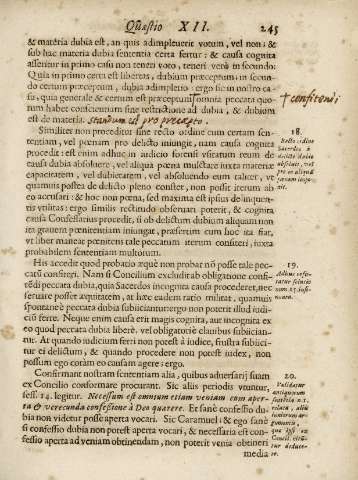 Quæstio XII. 245
& materia dubia est, an quis adimpleuerit votum, vel non: &
sub hac materia dubia sententia certa fertur: & causa cognita
asseritur in primo casu non teneri voto, teneri verò in secundo:
Quia in primo certa est libertas, dubium præceptum: in secun-
do certum præceptum, dubia adimpletio: ergo sic in nostro ca-
su, quia generale & certum est præceptum omnia peccata quo-
rum habet conscientiam sine restrictione ad dubia, & dubium
est de materia. standum est pro præcepto.
† confitendi
Similiter non proceditur sine recto ordine cum certam sen-
tentiam, vel pœnam pro delicto iniungit, nam causa cognita
procedit: est enim adhuc in iudicio forensi visitatum reum de
causa dubia absoluere, vel aliqua pœna mulctare iuxta materiæ
capacitatem, vel dubietatem, vel absoluendo eum caliter, vt
quamuis postea de delicto pleno constet, non possit iterum ab
eo accusari: & hoc non pœna, sed maxima est ipsius delinquen-
tis vtilitas: ergo similis rectitudo obseruari poterit, & cognita
causa Confessarius procedit, si ob delictum dubium aliquam non
ita grauem pœnitentiam iniungat, præsertim cum hoc ita fiat,
vt liber maneat pœnitens tale peccatum iterum confiteri, iuxta
probabilem sententiam multorum.
18.
Recto ordine
Sacerdos à
delicto dubio
absoluit, vel
pro eo aliquã
pœnam impo-
nit.
His accedit quod probatio æquè non probat nõ posse tale pec-
catũ confiteri. Nam si Concilium excludit ab obligatione confi-
tẽdi peccata dubia, quia Sacerdos incognita causa procederet, nec
seruare posset æquitatem, at hæc eadem ratio militat, quamuis
spontaneè peccata dubia subiiciantur: ergo non poterit illud iudi-
cio ferre. Neque enim causa erit magis cognita, aut incognita ex
eo quod peccata dubia liberè, vel obligatoriè clauibus subiician-
tur. At quando iudicium ferri non potest à iudice, frustra subiici-
tur ei delictum, & quando procedere non potest iudex, non
possum ego coram eo causam agere: ergo.
19.
Adhuc refu-
tatur solutio
num. 15. insi-
nuata.
Confirmare nostram sententiam alia, quibus aduersarij suam
ex Concilio conformare procurant. Sic aliis periodis vtuntur,
sess. 14. legitur. Necessum est omnium etiam veniam cum aper-
ta & verecunda confessione à Deo quærere. Et sanè confessio du-
bia non videtur posse aperta vocari. Sic Caramuel: & ego sanè
si confessio dubia non potest aperta vocari, & necessaria est con-
fessio aperta ad veniam obtinendam, non poterit venia obtineri
media
20.
Validatur
antiquorum
sentẽtia n. 1.
relata, aliis
iuniorum ar-
gumentis,
quæ ipsi ex
Concil. eliciũ-
tur deduce-
re.